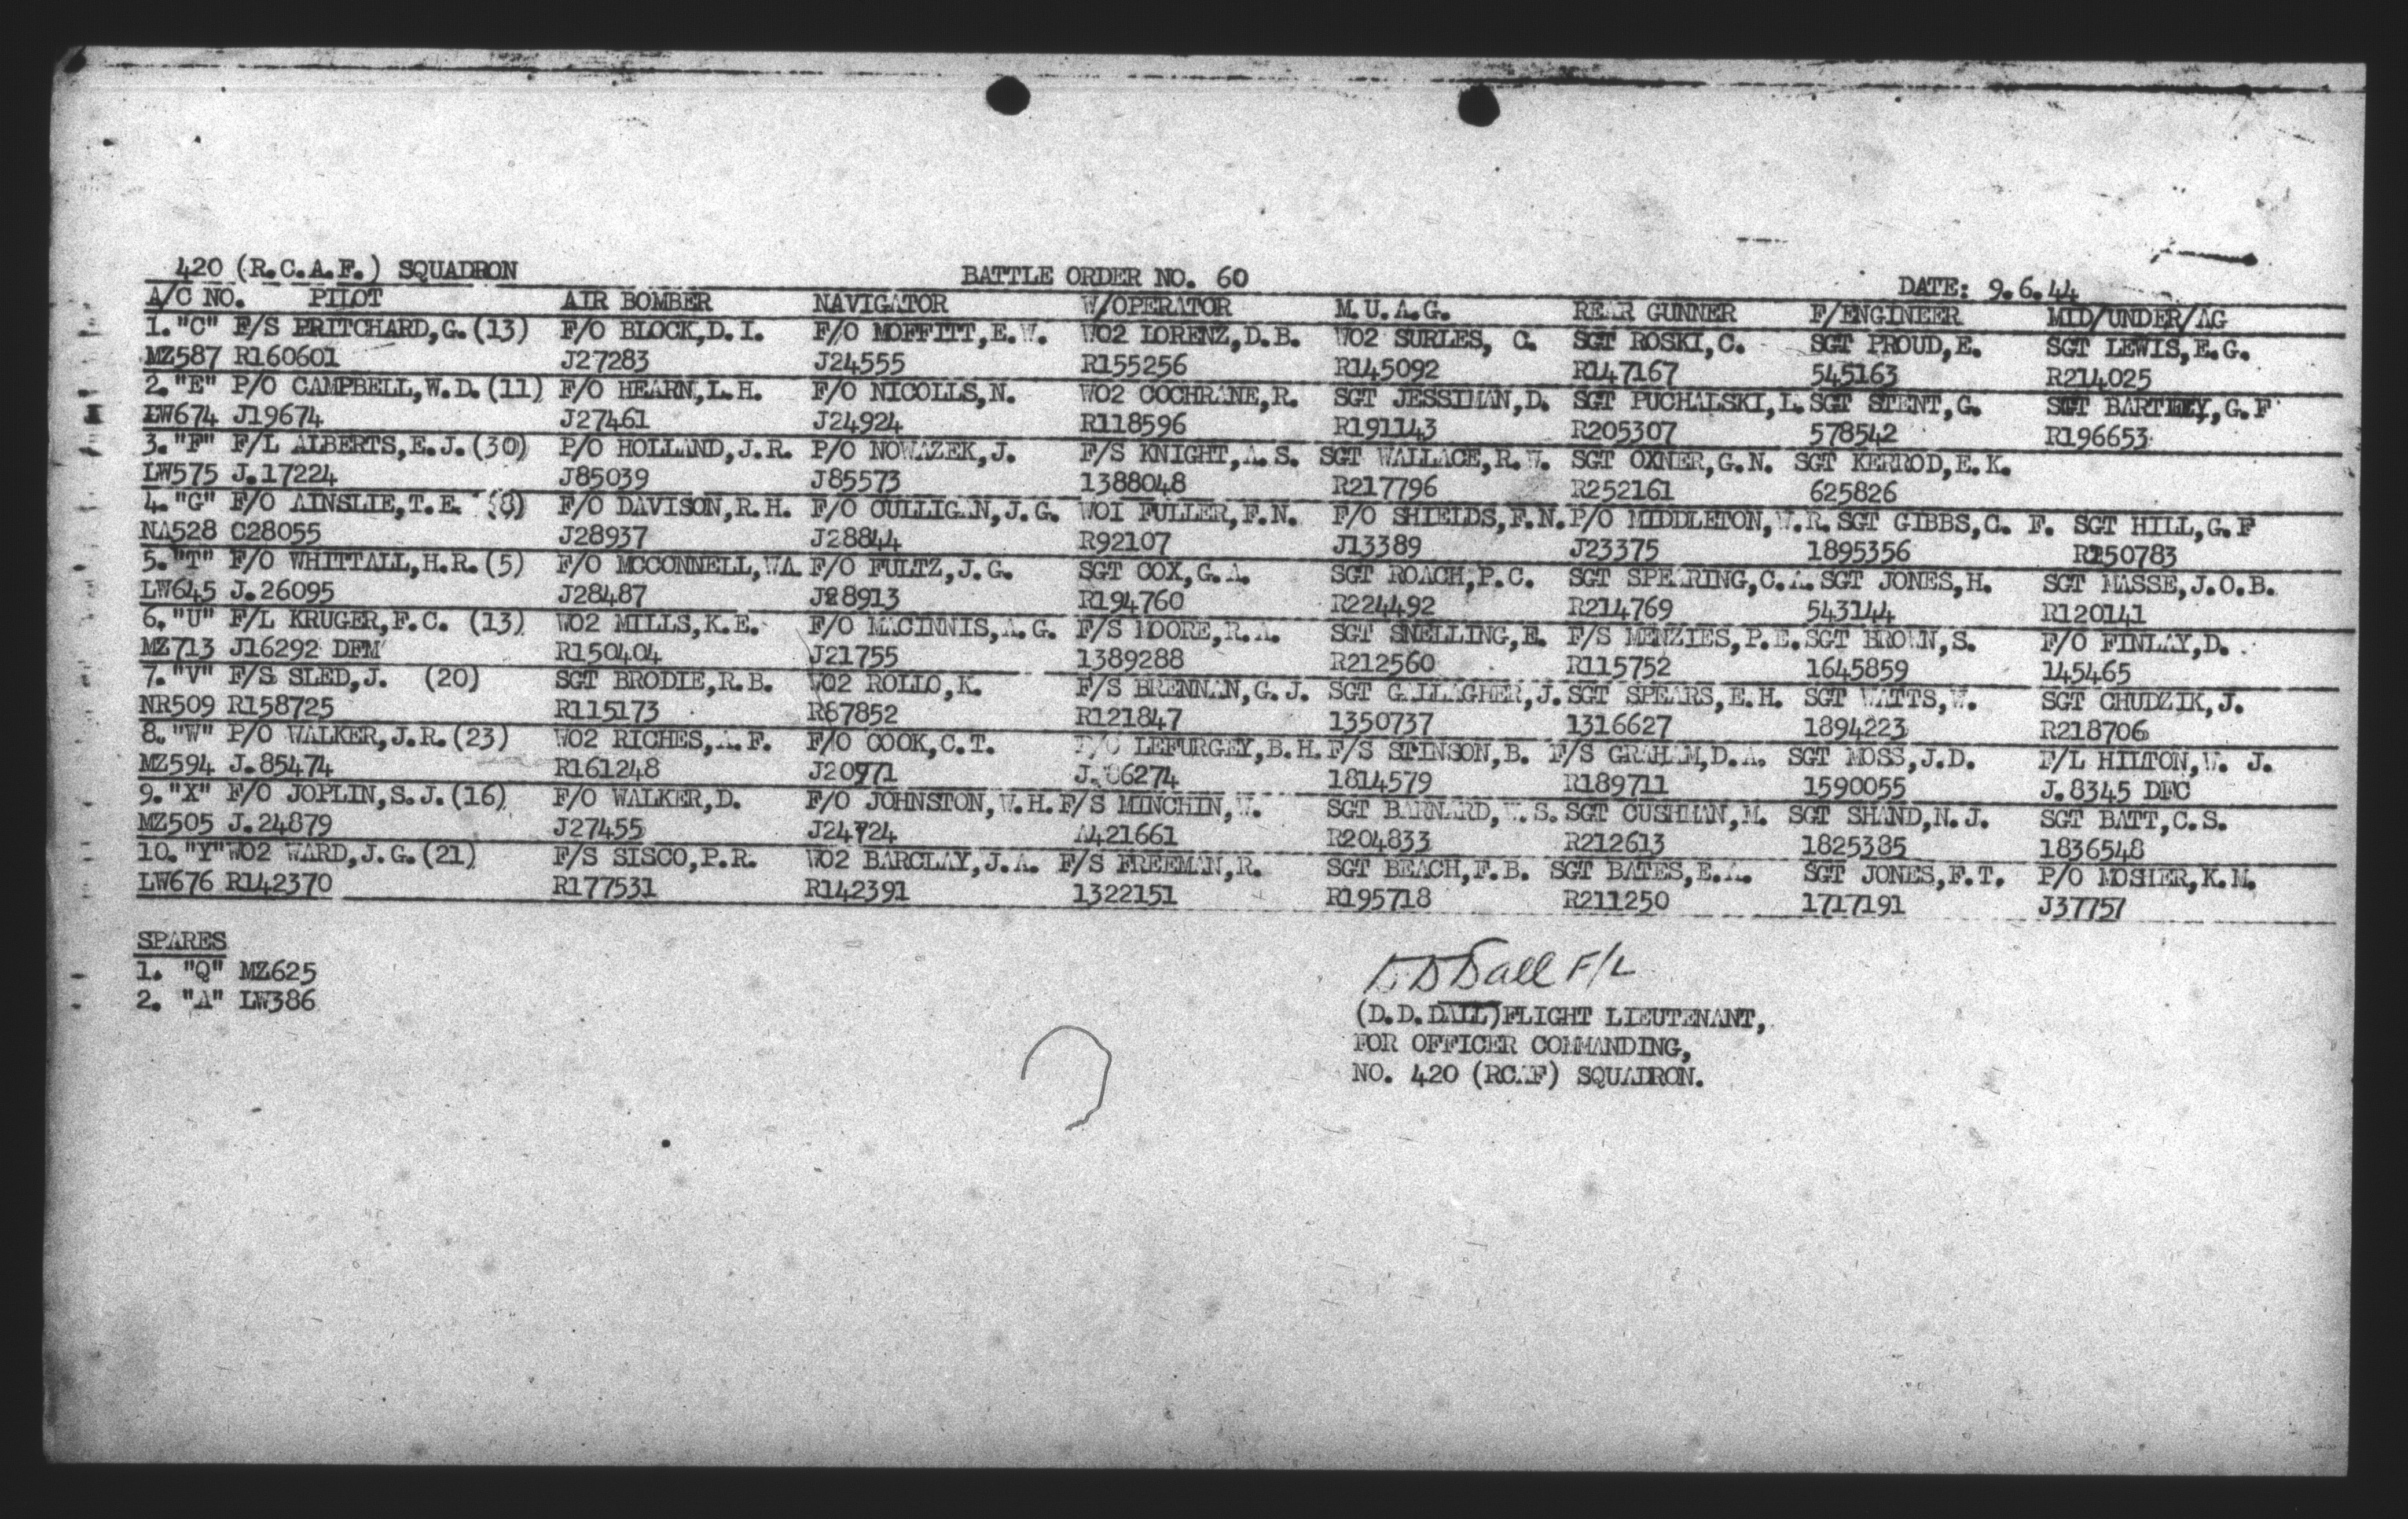 420 (R.C.A.F.) SQUADRON BATTLE ORDER NO. 60 DATE: 9.6.44
A/C NO. PILOT AIR BOMBER NAVIGATOR W/OPERATOR M.U.A.G. REAR GUNNER F/ENGINEER MID/UNDER/AG
1."C" F/S PRITCHARD,G.(13) F/O BLOCK,D.I. F/O MOFFITT,E.W. WO2 LORENZ,D.B. WO2 SURLES, C. SGT ROSKI,C. SGT PROUD,E. SGT LEWIS,E.G.
MZ587 R160601 J27283 J24555 R155256 R145092 R147167 545163 R214025
2."E" P/O CAMPBELL,W.D.(11) F/O HEARN,L.H. F/O NICOLLS,N. WO2 COCHRANE,R. SGT JESSIMAN,D. SGT PUCHALSKI,L. SGT STENT,G. SGT BARTLEY,G.F
LW674 J19674 J27461 J24924 R118596 R191143 R205307 578542 R196653
3."F" F/L ALBERTS,E.J.(30) P/O HOLLAND,J.R. P/O NOWAZEK,J. F/S KNIGHT,A.S. SGT WALLACE,R.W. SGT OXNER,G.N. SGT KERROD,E.K.
LW575 J.17224 J85039 J85573 1388048 R217796 R252161 625826
4."G" F/O AINSLIE,T.E. (8) F/O DAVISON,R.H. F/O CULLIGAN,J.G. WO1 FULLER,F.N. F/O SHIELDS,F.N. P/O MIDDLETON,W.R. SGT GIBBS,C. F. SGT HILL,G.F
NA528 C28055 J28937 J28844 R92107 J13389 J23375 1895356 R150783
5."T" F/O WHITTALL,H.R.(5) F/O MCCONNELL,WA F/O FULTZ,J.G. SGT COX,G.A. SGT ROACH,P.C. SGT SPEARING,C.A. SGT JONES,H. SGT MASSE,J.O.B.
LW645 J.26095 J28487 J28913 R194760 R224492 R214769 543144 R120141
6."U" F/L KRUGER,F.C. (13) WO2 MILLS,K.E. F/O MACINNIS,A.G. F/S MOORE,R.A. SGT SNELLING,E. F/S MENZIES,P.E. SGT BROWN,S. F/O FINLAY,D.
MZ713 J16292 DFM R150404 J21755 1389288 R212560 R115752 1645859 145465
7."V" F/S SLED,J. (20) SGT BRODIE,R.B. WO2 ROLLO,K. F/S BRENNAN,G.J. SGT GALLAGHER,J. SGT SPEARS,E.H. SGT WATTS,W. SGT CHUDZIK,J.
NR509 R158725 R115173 R87852 R121847 1350737 1316627 1894223 R218706
8."W" P/O WALKER,J.R.(23) WO2 RICHES,A.F. F/O COOK,C.T. P/O LEFURGEY,B.H. F/S STINSON,B. F/S GRAHAM,D.A. SGT MOSS,J.D. F/L HILTON,W. J.
MZ594 J.85474 R161248 J20971 J.86274 1814579 R189711 1590055 J.8345 DFC
9."X" F/O JOPLIN,S.J.(16) F/O WALKER,D. F/O JOHNSTON,W.H. F/S MINCHIN,W. SGT BARNARD,W.S. SGT CUSHMAN,M. SGT SHAND,N.J. SGT BATT,C.S.
MZ505 J.24879 J27455 J24724 A421661 R204833 R212613 1825385 1836548
10."Y" WO2 WARD,J.G.(21) F/S SISCO,P.R. WO2 BARCLAY,J.A. F/S FREEMAN,R. SGT BEACH,F.B. SGT BATES,E.A. SGT JONES,F.T. P/O MOSHER,K.M.
LW676 R142370 R177531 R142391 1322151 R195718 R211250 1717191 J37757
SPARES
1. "Q" MZ625
2. "A" LW386
D D Dall F/L
(D.D.DALL)FLIGHT LIEUTENANT,
FOR OFFICER COMMANDING,
NO. 420 (RCAF) SQUADRON.